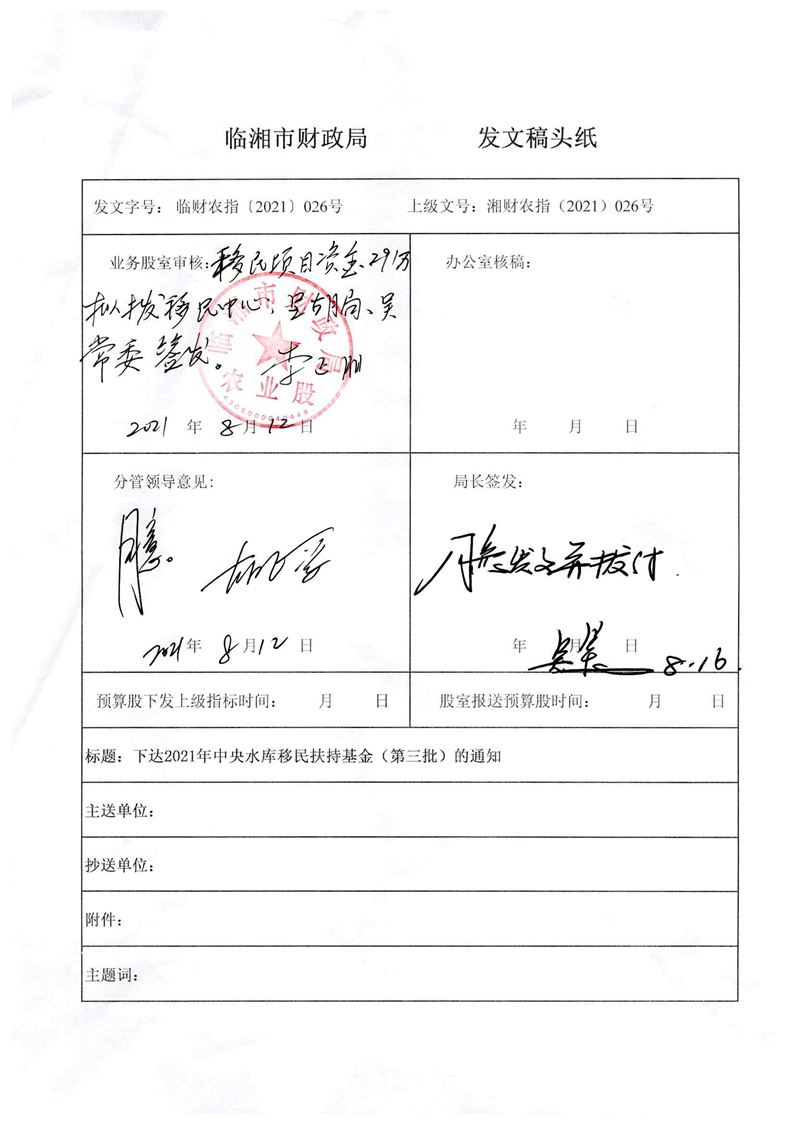 临湘市财政局 发文稿头纸
发文字号： 临财农指〔2021〕026号 上级文号：湘财农指（2021）026号
业务股室审核：移民项目资金291万
拟拨移民中心，呈胡局、吴
常委签发。
临湘市财政局
农业股
2021 年 8月12日
办公室核稿：
年 月 日
分管领导意见：
同意。
2021年 8月12日
局长签发：
同意发文并拨付.
年 月 日 8.16.
预算股下发上级指标时间： 月 日 股室报送预算股时间： 月 日
标题：下达2021年中央水库移民扶持基金（第三批）的通知
主送单位：
抄送单位：
附件：
主题词：